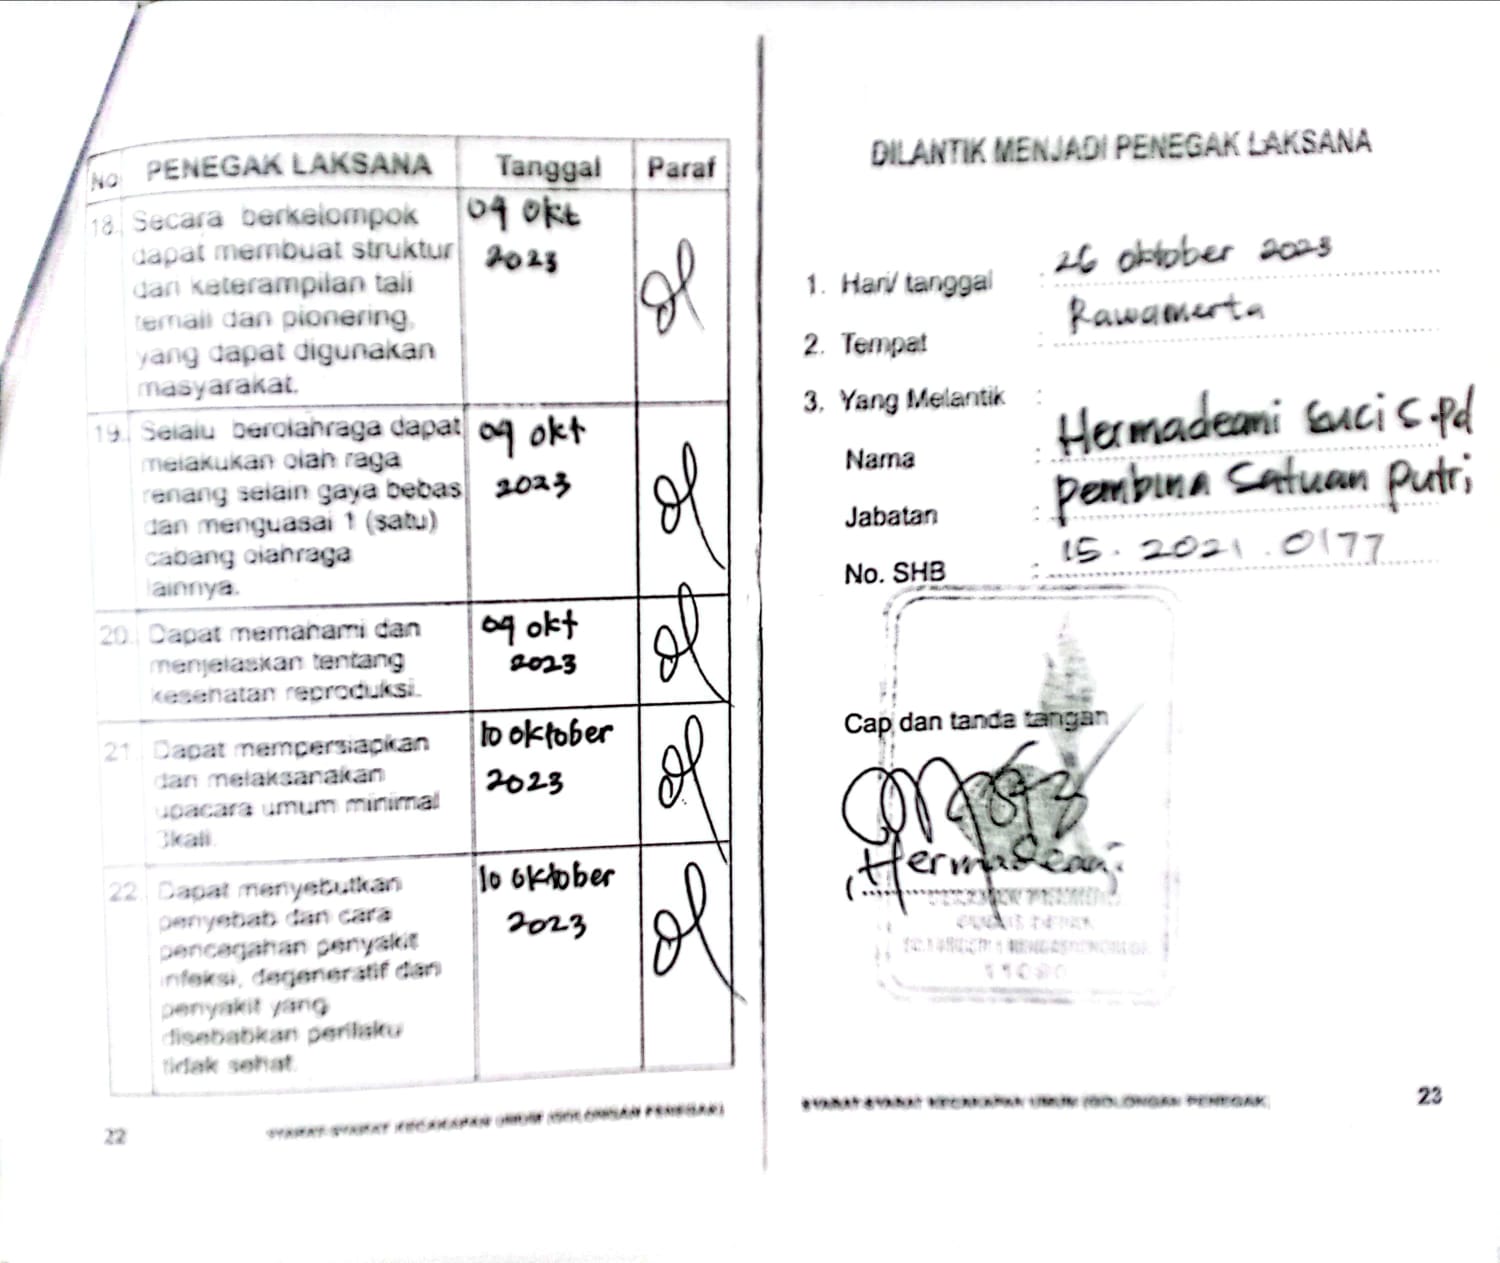 No PENEGAK LAKSANA Tanggal Paraf
18. Secara berkelompok 09 Okt
dapat membuat struktur 2023
dan keterampilan tali
temali dan pionering,
yang dapat digunakan
masyarakat.
19. Selalu berolahraga dapat 09 Okt
melakukan olah raga 2023
renang selain gaya bebas
dan menguasai 1 (satu)
cabang olahraga
lainnya.
20. Dapat memahami dan 09 Okt
menjelaskan tentang 2023
kesehatan reproduksi.
21. Dapat mempersiapkan 10 Oktober
dan melaksanakan 2023
upacara umum minimal
3kali.
22. Dapat menyebutkan 10 Oktober
penyebab dan cara 2023
pencegahan penyakit
infeksi, degeneratif dan
penyakit yang
disebabkan perilaku
tidak sehat.
22 SYARAT-SYARAT KECAKAPAN UMUM (GOLONGAN PENEGAK)
DILANTIK MENJADI PENEGAK LAKSANA
1. Hari/ tanggal : 26 Oktober 2023
2. Tempat : Rawamerta
3. Yang Melantik :
Nama : Hermadeani Suci S.Pd
Jabatan : Pembina Satuan Putri
No. SHB : 15.2021.0177
Cap dan tanda tangan
(Hermadeani
SYARAT-SYARAT KECAKAPAN UMUM (GOLONGAN PENEGAK) 23